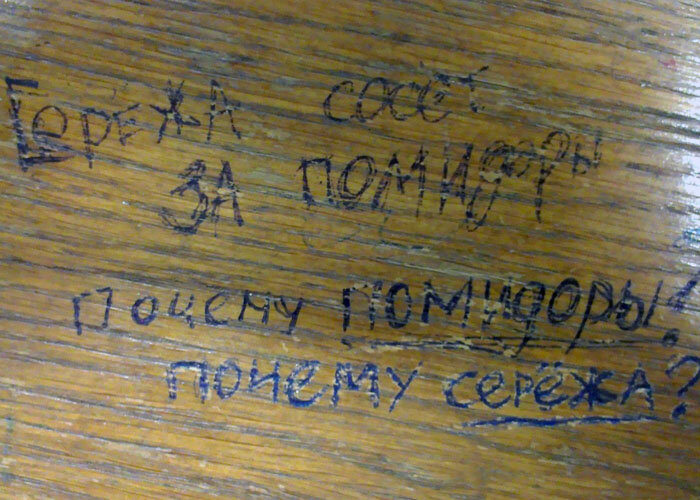 Серёжа сосёт
за помидоры
Почему помидоры?
почему серёжа?